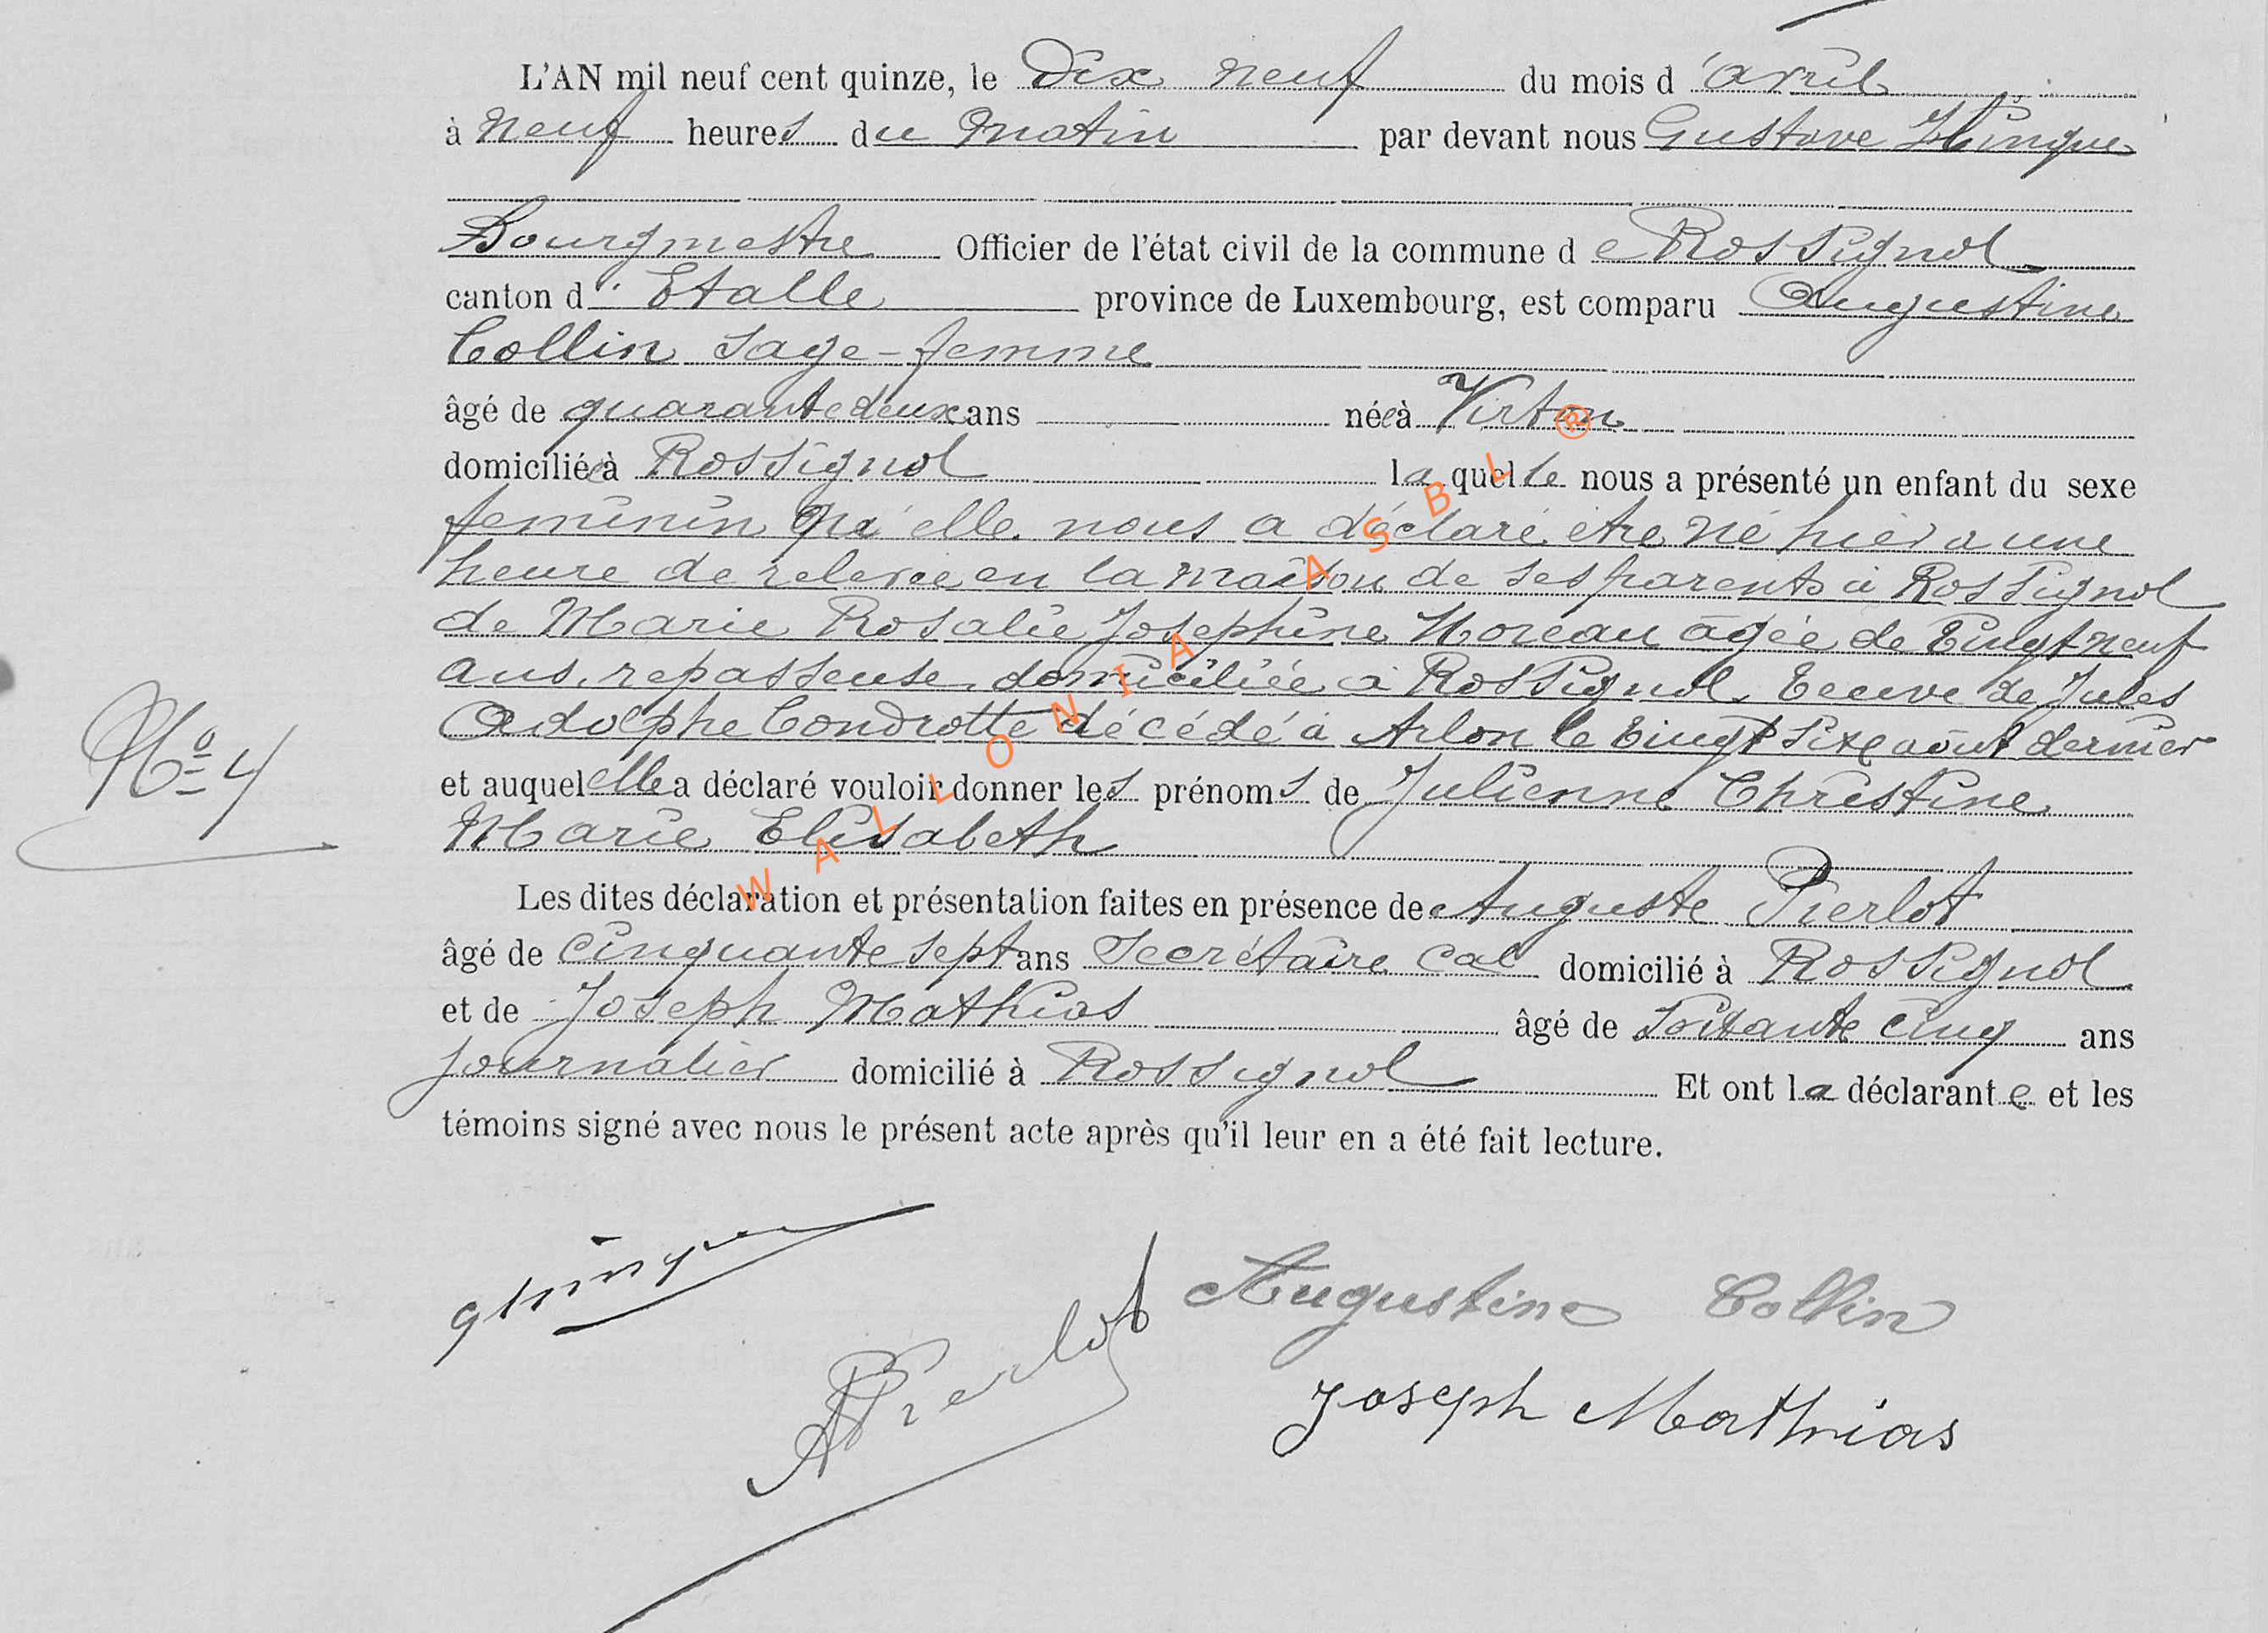 L'AN mil neuf cent quinze, le Dix neuf du mois d'avril
à neuf heures du matin par devant nous Gustave Hinque
Bourgmestre Officier de l'état civil de la commune de Rossignol
canton d'Etalle province de Luxembourg, est comparu Augustine
Collin sage-femme
âgé de quarante deux ans née à Virton
domiciliée à Rossignol laquelle nous a présenté un enfant du sexe
feminin qu'elle nous a déclaré être né hier a une
heure de relevée en la maison de ses parents à Rossignol
de Marie Rosalie Josephine Moreau agée de Vingt neuf
ans, repasseuse domiciliée à Rossignol, Veuve de Jules
Adolphe Condrotte décédé à Arlon le Vingt six août dernier
N° 4
et auquel elle a déclaré vouloir donner les prénoms de Julienne Christine
Marie Elisabeth
Les dites déclaration et présentation faites en présence de Auguste Pierlot
âgé de cinquante sept ans Secrétaire cal domicilié à Rossignol
et de Joseph Mathias âgé de Soixante cinq ans
journalier domicilié à Rossignol Et ont la déclarante et les
témoins signé avec nous le présent acte après qu'il leur en a été fait lecture.
Augustine Collin
APierlot
Joseph Mathias
WALLONIA ASBL ®